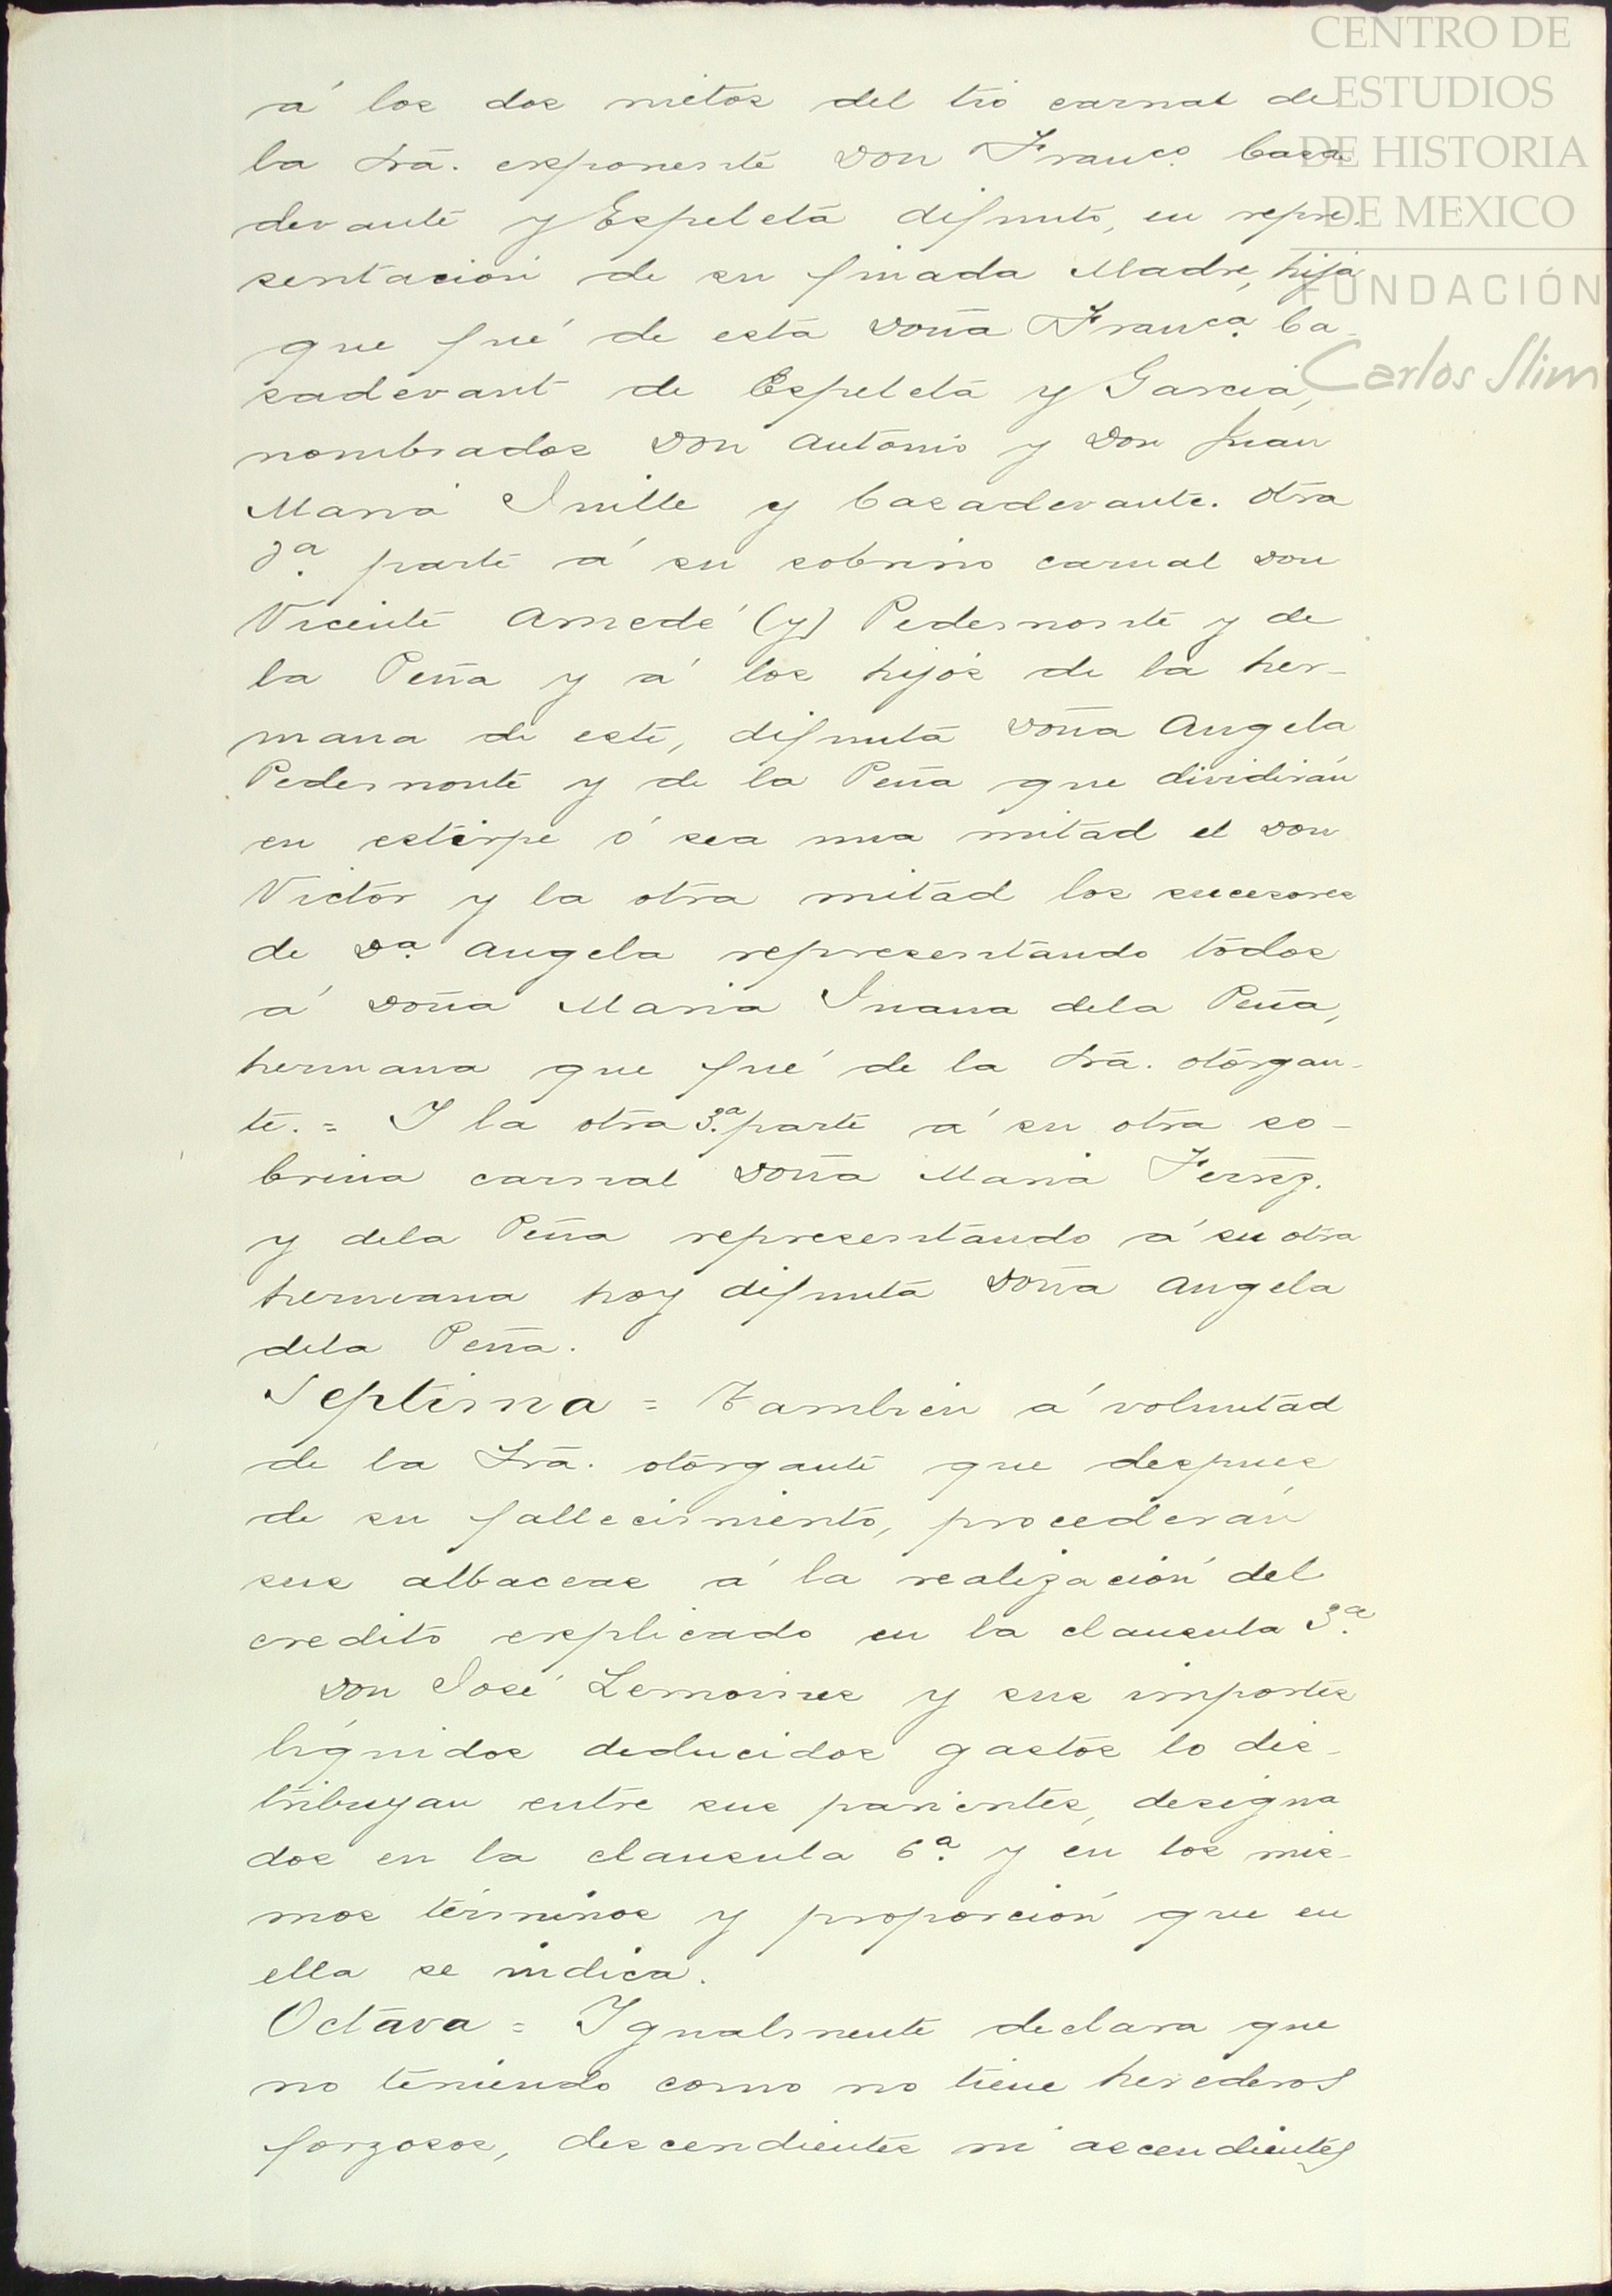 CENTRO DE
ESTUDIOS
DE HISTORIA
DE MEXICO
FUNDACIÓN
Carlos Slim
á los dos nietos del tio carnal de
la Sra. exponente Don Franco. Casa
devante y Espeleta difunto, en repre-
sentación de su finada Madre, hija
que fué de esta Doña Franca. Ca-
sadevant de Espeleta y Garcia,
nombrados Don Antonio y Don Juan
Maria Inille y Casadevante. Otra
3a. parte á su sobrino carnal Don
Vicente Amedé (y) Pedesmonte y de
la Peña y á los hijos de la her-
mana de este, difunta Doña Angela
Pedesmonte y de la Peña que dividirán
en estirpe ó sea una mitad el Don
Victor y la otra mitad los sucesores
de Da. Angela representando todos
á Doña Maria Juana dela Peña,
hermana que fué de la Sra. otorgan-
te. = I la otra 3.a parte á su otra so-
brina carnal Doña Maria Fernz.
y dela Peña representando á su otra
hermana hoy difunta Doña Angela
dela Peña.
Septima = Tambien á voluntad
de la Sra. otorgante que despues
de su fallecimiento, procederán
sus albaceas á la realización del
credito explicado en la clausula 3.a
Don José Lemoines y sus importes
líquidos deducidos gastos lo dis-
tribuyan entre sus parientes, designa
dos en la clausula 6.a y en los mis-
mos términos y proporción que en
ella se indica.
Octava = Igualmente declara que
no teniendo como no tiene herederos
forzosos, descendientes ni ascendientes